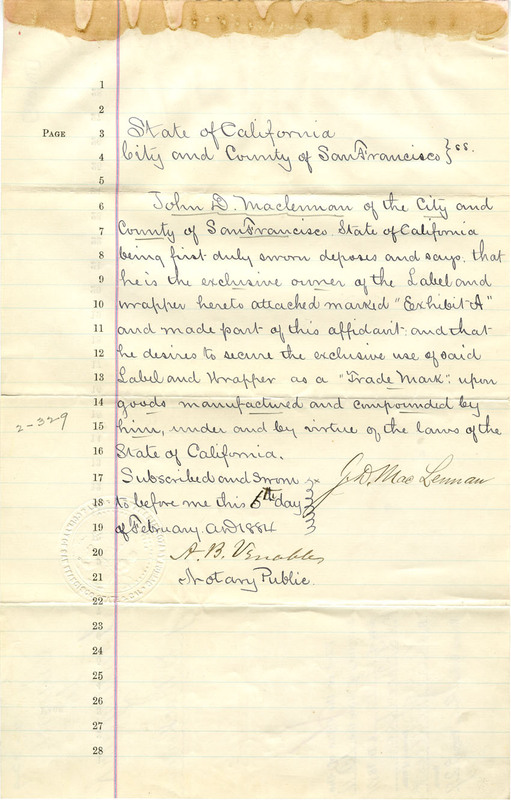 1
2
PAGE 3 State of California
4 City and County of San Francisco } ss.
5
6 John D. Maclennan of the City and
7 County of San Francisco State of California
8 being first duly sworn deposes and says. that
9 he is the exclusive owner of the Label and
10 wrapper hereto attached marked "Exhibit A"
11 and made part of this affidavit: and that
12 he desires to secure the exclusive use of said
13 Label and Wrapper as a "Trade Mark": upon
14 goods manufactured and compounded by
2-329
15 him, under and by virtue of the laws of the
16 State of California.
17 Subscribed and sworn J. D. Mac Lennan
18 to before me this 5th day
19 of February A.D 1884
20 A. B. Venables
21 Notary Public.
22
23
24
25
26
27
28